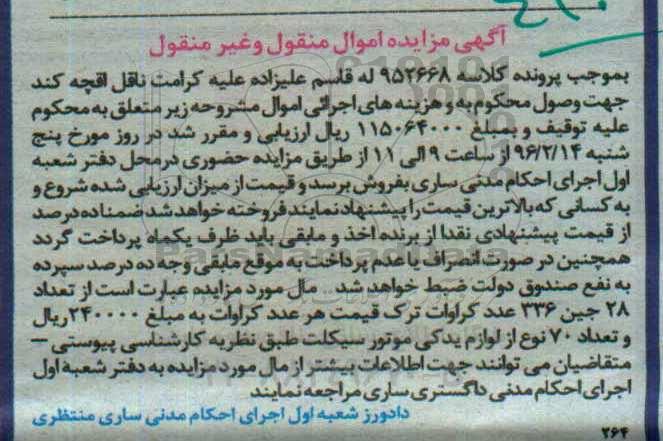 آگهی مزایده اموال منقول وغیر منقول
بموجب پرونده کلاسه ۹۵۲۶۶۸ له قاسم علیزاده علیه کرامت ناقل اقچه کند
جهت وصول محکوم به و هزینه های اجرائی اموال مشروحه زیر متعلق به محکوم
علیه توقیف و بمبلغ ۱۱۵۰۶۴۰۰۰ ریال ارزیابی و مقرر شد در روز مورخ پنج
شنبه ۹۶/۲/۱۴ از ساعت ۹ الی ۱۱ از طریق مزایده حضوری درمحل دفتر شعبه
اول اجرای احکام مدنی ساری بفروش برسد و قیمت از میزان ارزیابی شده شروع و
به کسانی که بالاترین قیمت را پیشنهاد نمایند فروخته خواهد شد ضمنا ده درصد
از قیمت پیشنهادی نقدا از برنده اخذ و مابقی باید ظرف یکماه پرداخت گردد
همچنین در صورت انصراف یا عدم پرداخت به موقع مابقی وجه ده درصد سپرده
به نفع صندوق دولت ضبط خواهد شد . مال مورد مزایده عبارت است از تعداد
۲۸ جین ۳۳۶ عدد کراوات ترک قیمت هر عدد کراوات به مبلغ ۲۴۰۰۰۰ ریال
و تعداد ۷۰ نوع از لوازم یدکی موتور سیکلت طبق نظریه کارشناسی پیوستی –
متقاضیان می توانند جهت اطلاعات بیشتر از مال مورد مزایده به دفتر شعبه اول
اجرای احکام مدنی دادگستری ساری مراجعه نمایند
دادورز شعبه اول اجرای احکام مدنی ساری منتظری
۲۶۴